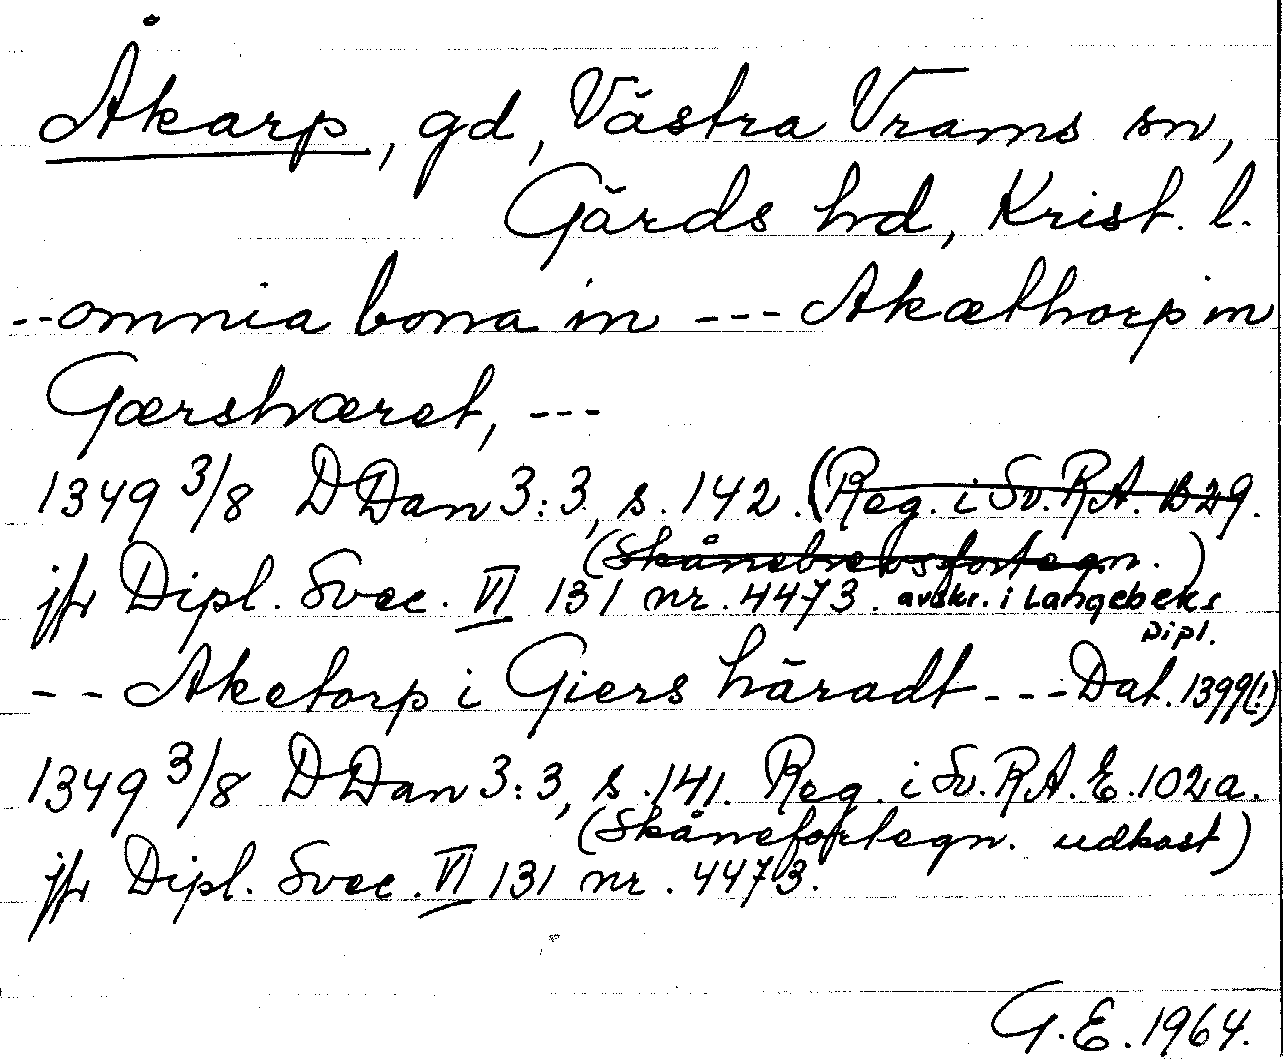 Åkarp, gd, Västra Vrams sn,
Gärds hd, Krist. l.
--omnia bona in --- Akæthorp in
Gærshæret, ---
1349 3/8 DDan 3:3, s. 142. (Reg. i Sv. R.A. B29.
(Skånebrevsfortegn.)
jfr Dipl. Svec. VI 131 nr. 4473. avskr. i Langebeks
Dipl.
-- Aketorp i Giers häradt --- Dat. 1399(!)
1349 3/8 DDan 3:3, s. 141. Reg. i Sv. R.A. E. 102a.
(Skånefortegn. udkast)
jfr Dipl. Svec. VI 131 nr. 4473.
G.E. 1964.